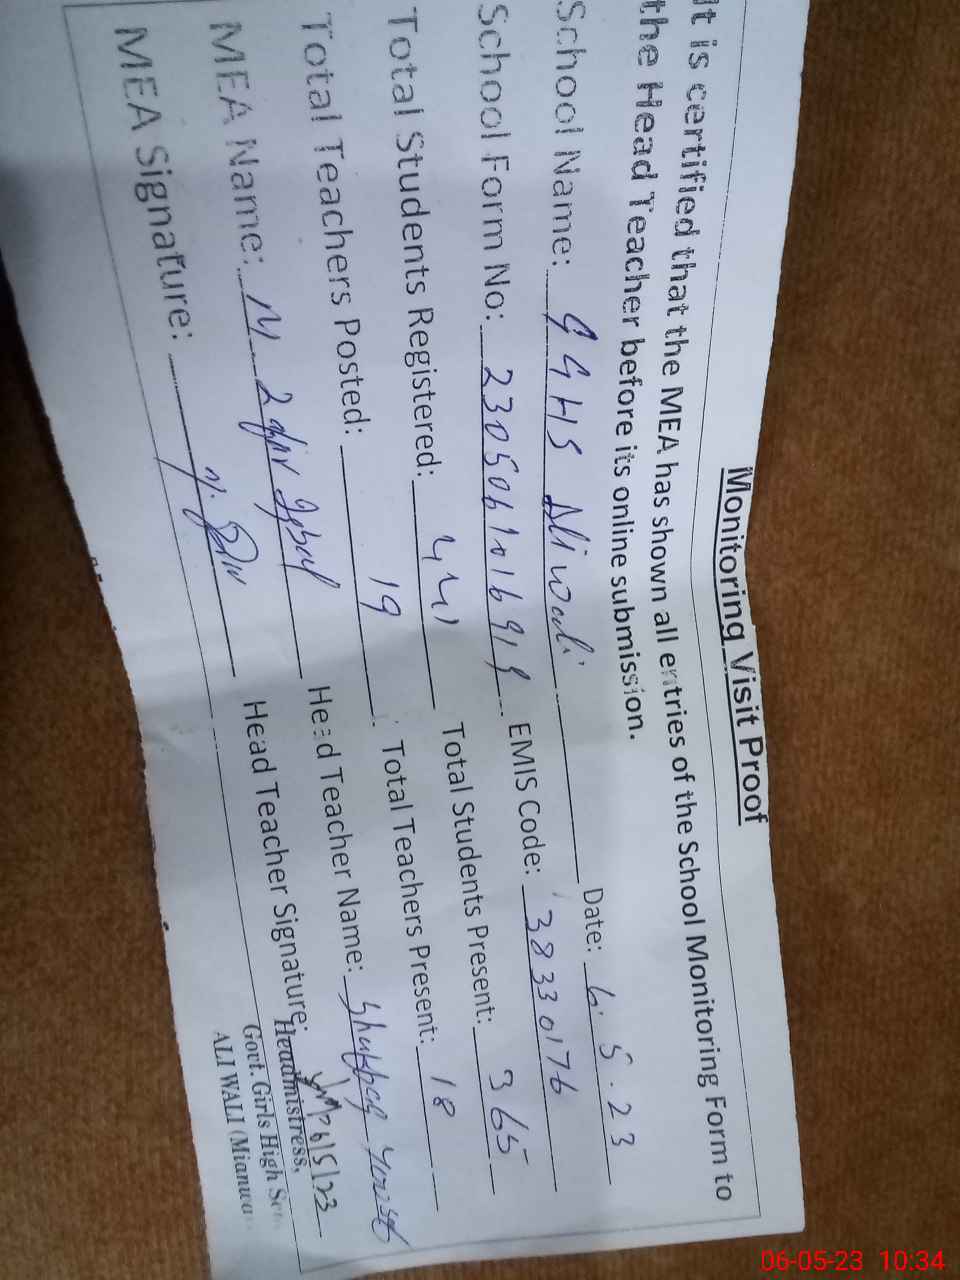 Monitoring Visit Proof
It is certified that the MEA has shown all entries of the School Monitoring Form to
the Head Teacher before its online submission.
School Name: GGHS Ali Wali Date: 6.5.23
School Form No: 23050610169 EMIS Code: 38330176
Total Students Registered: 441 Total Students Present: 365
Total Teachers Posted: 19 Total Teachers Present: 18
MEA Name: M Iqbal Head Teacher Name:
MEA Signature: Head Teacher Signature: 6/5/23
Headmistress,
Govt. Girls High
ALI WALI (Mianwa
06-05-23 10:34